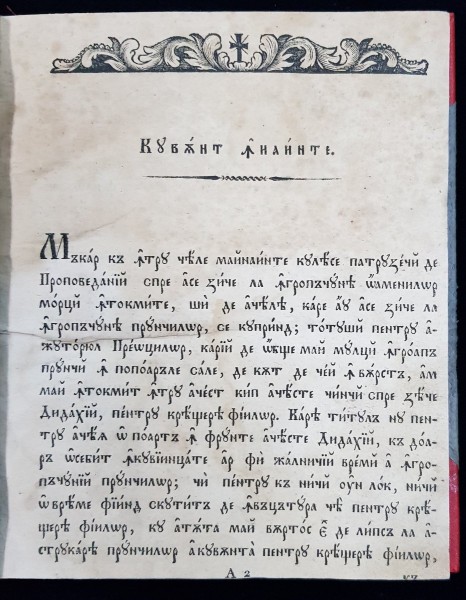 Кꙋвѫ́нт ꙟ҆наи́нте.
Мъка́р къ ꙟ҆трꙋ че́ле майнаи́нте кꙋле́се патрꙋзе́чй де
Проповеда́нїй спре а҆се зи́че ла ꙟ҆гропъчꙋ́нѣ ѡ҆́аменилѡр
мо́рцй ꙟ҆токми́те, шѝ де а҆че́лѣ, ка́ре а҆ꙋ а҆се зи́че ла
ꙟ҆гропъчꙋ́нѣ прꙋ́нчилѡр, се кꙋпри́нд; то́тꙋши пентрꙋ а҆-
жꙋто́рюл Прео́цилѡр, ка́рїй де ѡ҆́бще май мꙋ́лцй ꙟ҆гроа́пъ
прꙋ́нчй ꙟ҆ попоа́рѣле са́ле, де кѫ́т де че́й ꙟ҆ вѫ́рстъ, а҆м
май ꙟ҆токми́т ꙟ҆трꙋ а҆че́ст кип а҆че́сте чи́нчй спре зѣ́че
Дида́хїй, пе́нтрꙋ крѣ́щерѣ фі́илѡр. Ка́рѣ ти́тꙋл нꙋ пен-
трꙋ а҆че́я ѡ҆ поа́ртъ ꙟ҆ фрꙋ́нте а҆че́сте Дида́хїй, къ доа-
ръ ѡ҆себи́т ꙟ҆кꙋвїинца́те ар фѝ жа́лничїй вре́мй а҆ ꙟ҆гро-
пъчꙋ́нїй прꙋ́нчилѡр; чѝ пе́нтрꙋ къ ни́чй ꙋ҆́н лок, ни́чй
ѡ҆ врѣ́ме фїи́нд скꙋти́тъ де ꙟ҆въцътꙋ́ра чѣ пентрꙋ крѣ́-
щерѣ фі́илѡр, кꙋ а҆тѫ́та май вѫ́ртос є҆́ де ли́псъ ла а҆-
стрꙋка́рѣ прꙋ́нчилѡр а҆кꙋвѫнта̀ пентрꙋ крѣ́щерѣ фі́илѡр,
А 2 къ